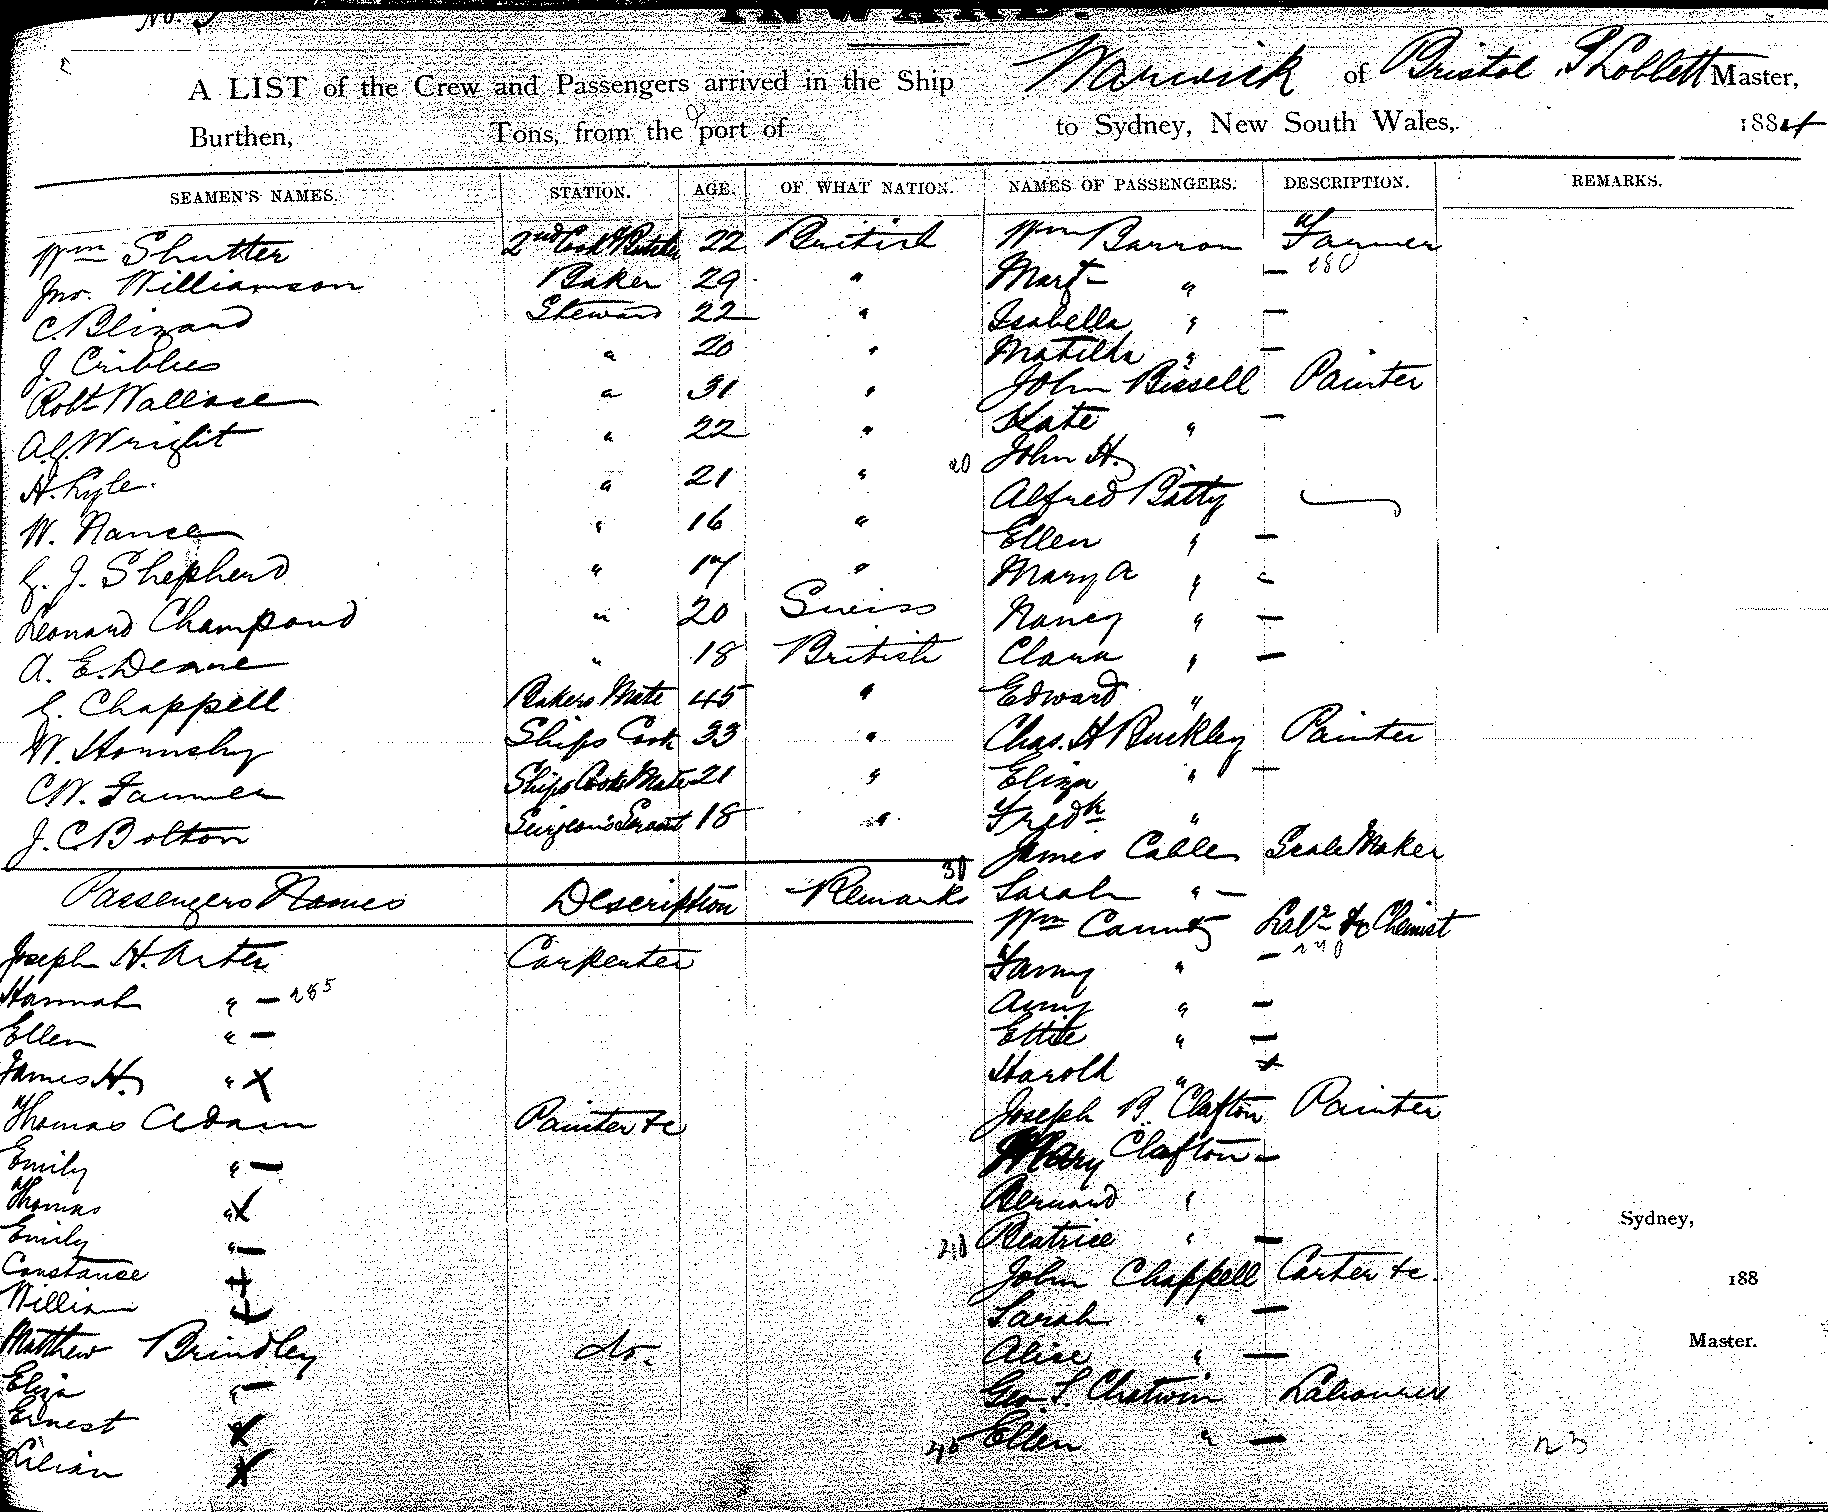 No. 5
INWARD.
A LIST of the Crew and Passengers arrived in the Ship Warwick of Bristol Master,
Burthen, Tons, from the port of to Sydney, New South Wales, 1884
SEAMEN'S NAMES. STATION. AGE. OF WHAT NATION.
Wm Shutter 2nd Cook & Butcher 22 British
Jno. Williamson Baker 29 "
C. Blizard Steward 22 "
J. Cribbes " 20 "
Robt Wallace " 31 "
A.G. Wright " 22 "
H. Lyle. " 21 "
W. Nance " 16 "
G. J. Shepherd " 17 "
Leonard Champoud " 20 Swiss
A. E. Deane " 18 British
G. Chappell Bakers Mate 45 "
W. Hornsby Ships Cook 33 "
C.W. Farmer Ships Cooks Mate 21 "
J. C. Bolton Surgeon's Servant 18 "
Passengers Names Description Remarks
Joseph H. Arter Carpenter
Hannah " — 285
Ellen " —
James H. " X
Thomas Adam Painter &c
Emily " —
Thomas " X
Emily " —
Constance +
William +
Matthew Brindley do.
Eliza " —
Ernest X
Lilian X
NAMES OF PASSENGERS. DESCRIPTION. REMARKS.
Wm Barron Farmer
Margt " — 280
Isabella " —
Matilda " —
John Bissell Painter
Kate " —
20 John H.
Alfred Batty
Ellen " —
Mary A " —
Nancy " —
Clara " —
Edward "
Chas. H Buckley Painter
Eliza " —
Fredk "
James Cable Scale Maker
30 Sarah " —
Wm Labr &c Chemist
Fanny " — 290
Amy " —
Ettie " —
Harold " +
Joseph B. Clafton Painter
Mary Clafton —
Bernard "
Beatrice " —
John Chappell Carter &c.
Sarah " —
Alice " —
Geo. S. Chetwin Labourer
40 Ellen " —
Sydney,
188
Master.
23